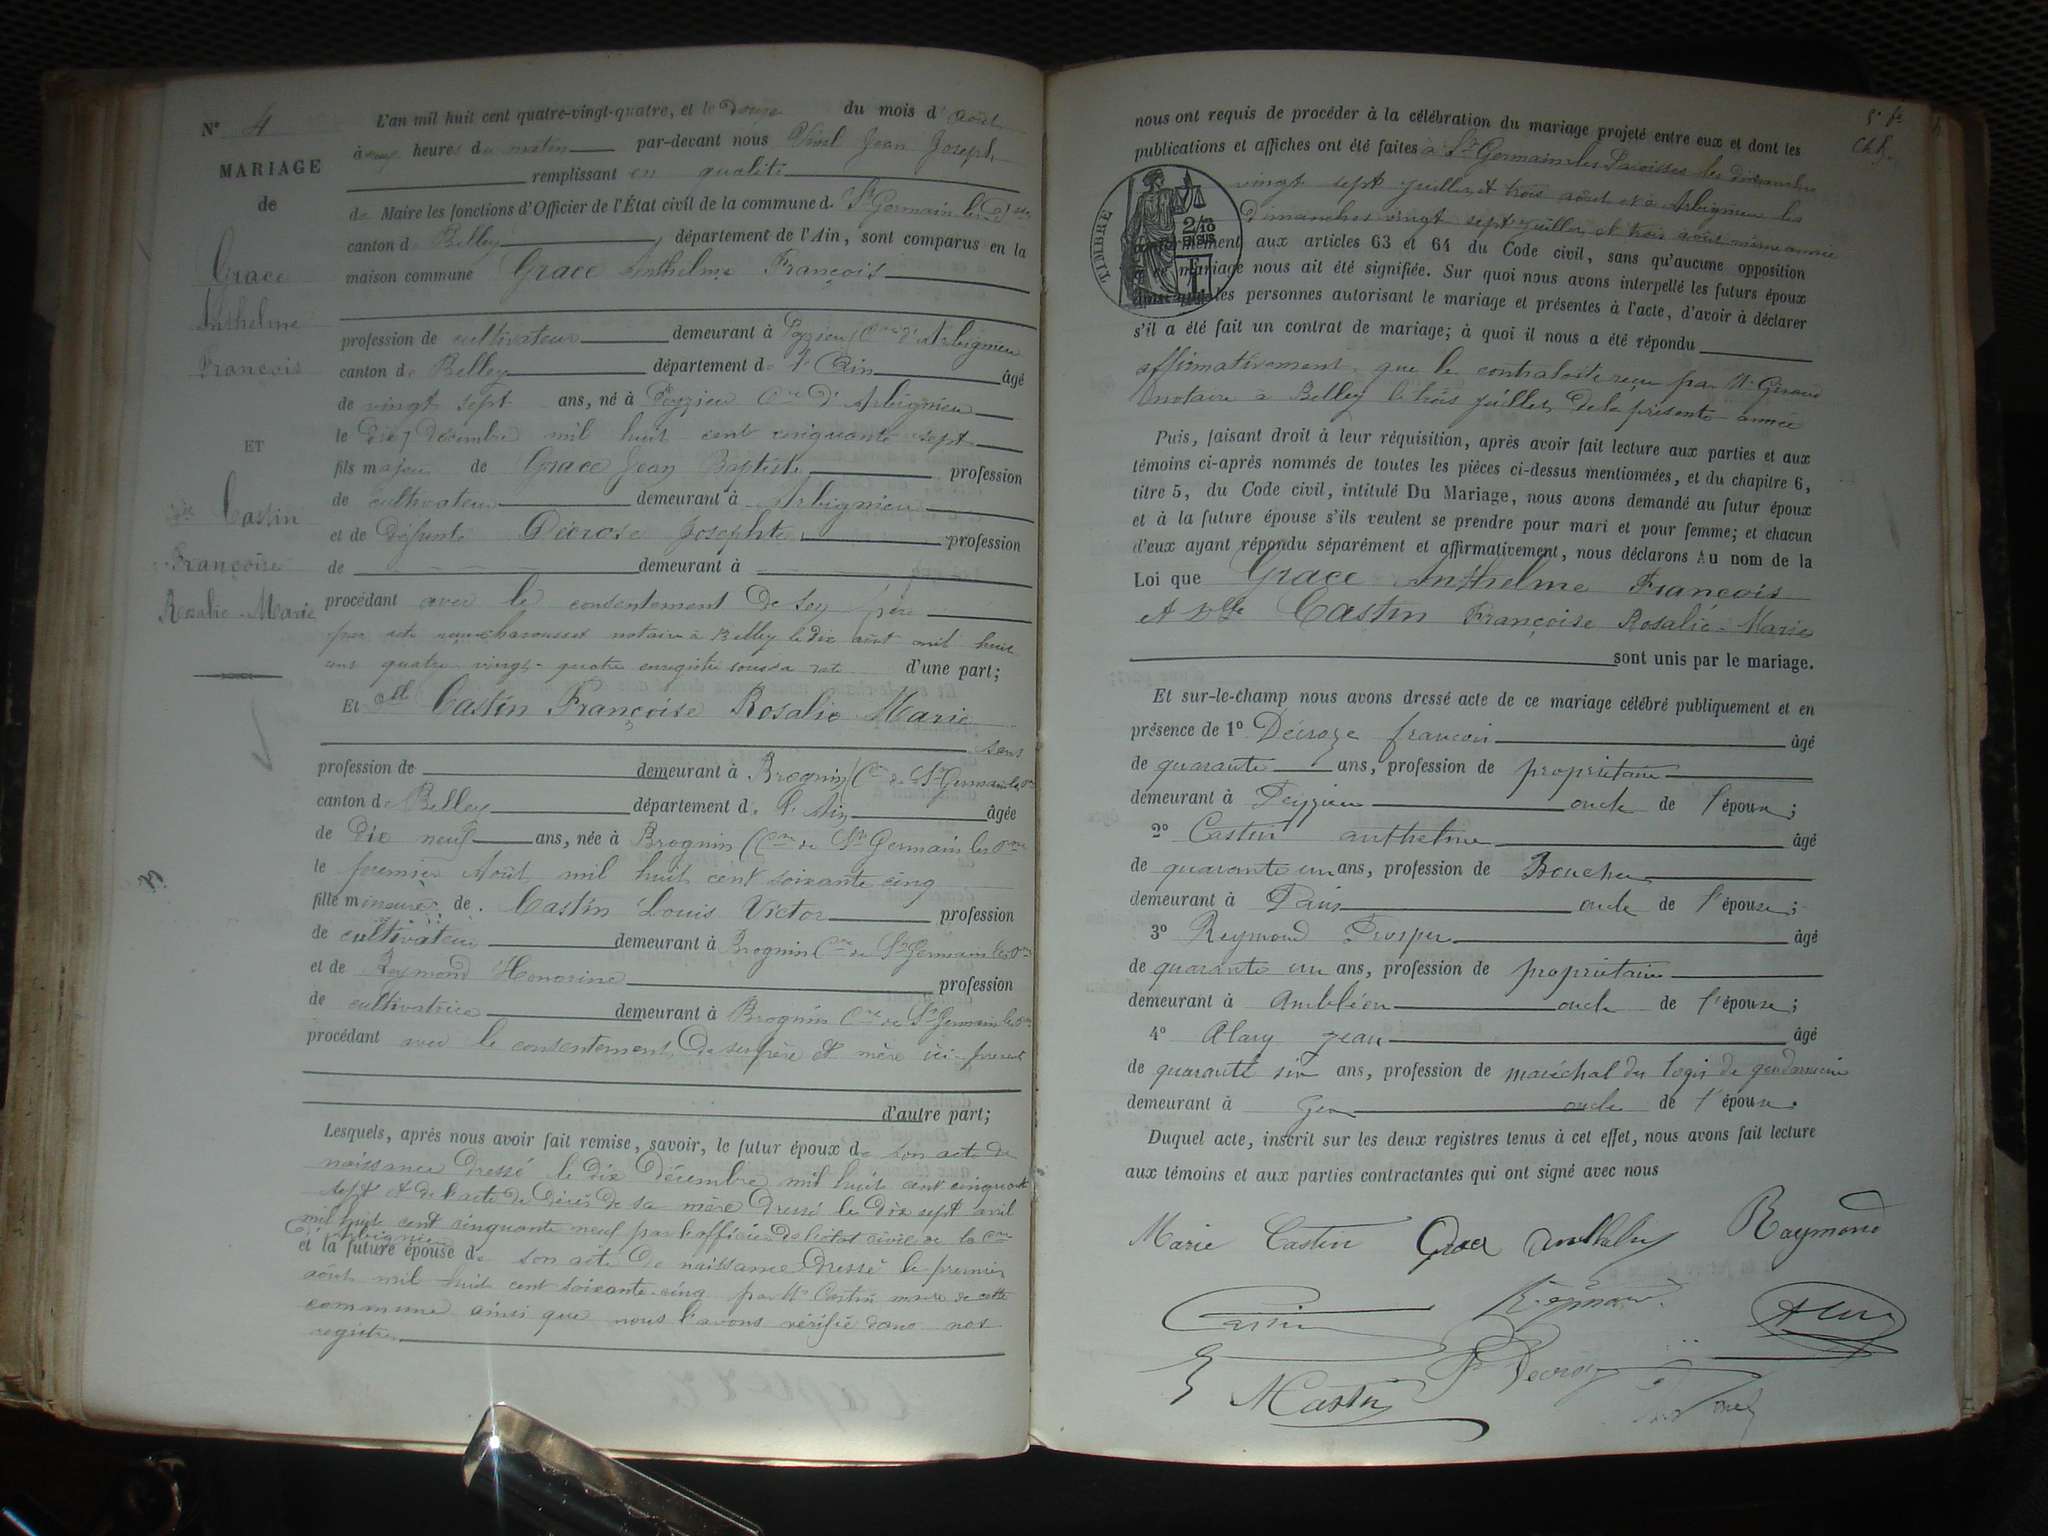 N° 4
MARIAGE
de
Grace
Anthelme
François
ET
Dlle Castin
Françoise
Rosalie-Marie
L'an mil huit cent quatre-vingt-quatre, et le Douze du mois d'Août
à heures du matin par-devant nous Jean Joseph
remplissant en qualité
de Maire les fonctions d'Officier de l'État civil de la commune de St Germain les
canton de Belley, département de l'Ain, sont comparus en la
maison commune Grace Anthelme François
profession de cultivateur demeurant à Peyzieu Cne d'Arbignieu
canton de Belley département de l'Ain âgé
de vingt sept ans, né à Peyzieu Cne D'Arbignieu
le dix Décembre mil huit cent cinquante sept
fils majeur de Grace Jean Baptiste profession
de cultivateur demeurant à Arbignieu
et de défunte Décrose Josephte profession
de demeurant à
procédant avec le consentement de son père
par acte reçu notaire à Belley le dix août mil huit
cent quatre-vingt-quatre enregistré d'une part;
Et Dlle Castin Françoise Rosalie Marie
sans
profession de demeurant à Brognin (Cne de St Germain les
canton de Belley département de l'Ain âgée
de dix neuf ans, née à Brognin (Cne de St Germain les
le premier Août mil huit cent soixante cinq
fille mineure de Castin Louis Victor profession
de cultivateur demeurant à Brognin Cne de St Germain les
et de Reymond Honorine profession
de cultivatrice demeurant à Brognin Cne de St Germain les
procédant avec le consentement de ses père et mère ici présent
d'autre part;
Lesquels, après nous avoir fait remise, savoir, le futur époux de son acte de
naissance Dressé le dix Décembre mil huit cent cinquante
sept et de l'acte de Décès de sa mère Dressé le dix sept avril
mil huit cent cinquante neuf par l'officier de l'état civil de la Cne
d'Arbignieu
et la future épouse de son acte de naissance Dressé le premier
août mil huit cent soixante-cinq par Mr Castin maire de cette
commune ainsi que nous l'avons vérifié dans nos
registres
nous ont requis de procéder à la célébration du mariage projeté entre eux et dont les
publications et affiches ont été faites à St Germain les Paroisses les dimanches
vingt sept juillet et trois août et à Arbignieu les
Dimanches vingt sept juillet et trois août même année
TIMBRE
2/10
EN SUS
conformément aux articles 63 et 64 du Code civil, sans qu'aucune opposition
à ce mariage nous ait été signifiée. Sur quoi nous avons interpellé les futurs époux
ainsi que les personnes autorisant le mariage et présentes à l'acte, d'avoir à déclarer
s'il a été fait un contrat de mariage; à quoi il nous a été répondu
affirmativement que le contrat reçu par Me Giraud
notaire à Belley le trois juillet de la présente année
Puis, faisant droit à leur réquisition, après avoir fait lecture aux parties et aux
témoins ci-après nommés de toutes les pièces ci-dessus mentionnées, et du chapitre 6,
titre 5, du Code civil, intitulé Du Mariage, nous avons demandé au futur époux
et à la future épouse s'ils veulent se prendre pour mari et pour femme; et chacun
d'eux ayant répondu séparément et affirmativement, nous déclarons Au nom de la
Loi que Grace Anthelme François
et Dlle Castin Françoise Rosalie-Marie
sont unis par le mariage.
Et sur-le-champ nous avons dressé acte de ce mariage célébré publiquement et en
présence de 1° Décroze françois âgé
de quarante ans, profession de propriétaire
demeurant à Peyzieu oncle de l'époux;
2° Castin anthelme âgé
de quarante un ans, profession de Boucher
demeurant à Paris oncle de l'épouse;
3° Reymond Prosper âgé
de quarante un ans, profession de propriétaire
demeurant à Ambléon oncle de l'épouse;
4° Alary jean âgé
de quarante six ans, profession de maréchal des logis de gendarmerie
demeurant à Gex oncle de l'épouse.
Duquel acte, inscrit sur les deux registres tenus à cet effet, nous avons fait lecture
aux témoins et aux parties contractantes qui ont signé avec nous
Marie Castin Grace Raymond
Castin Reymond Alary
A Castin Decroze